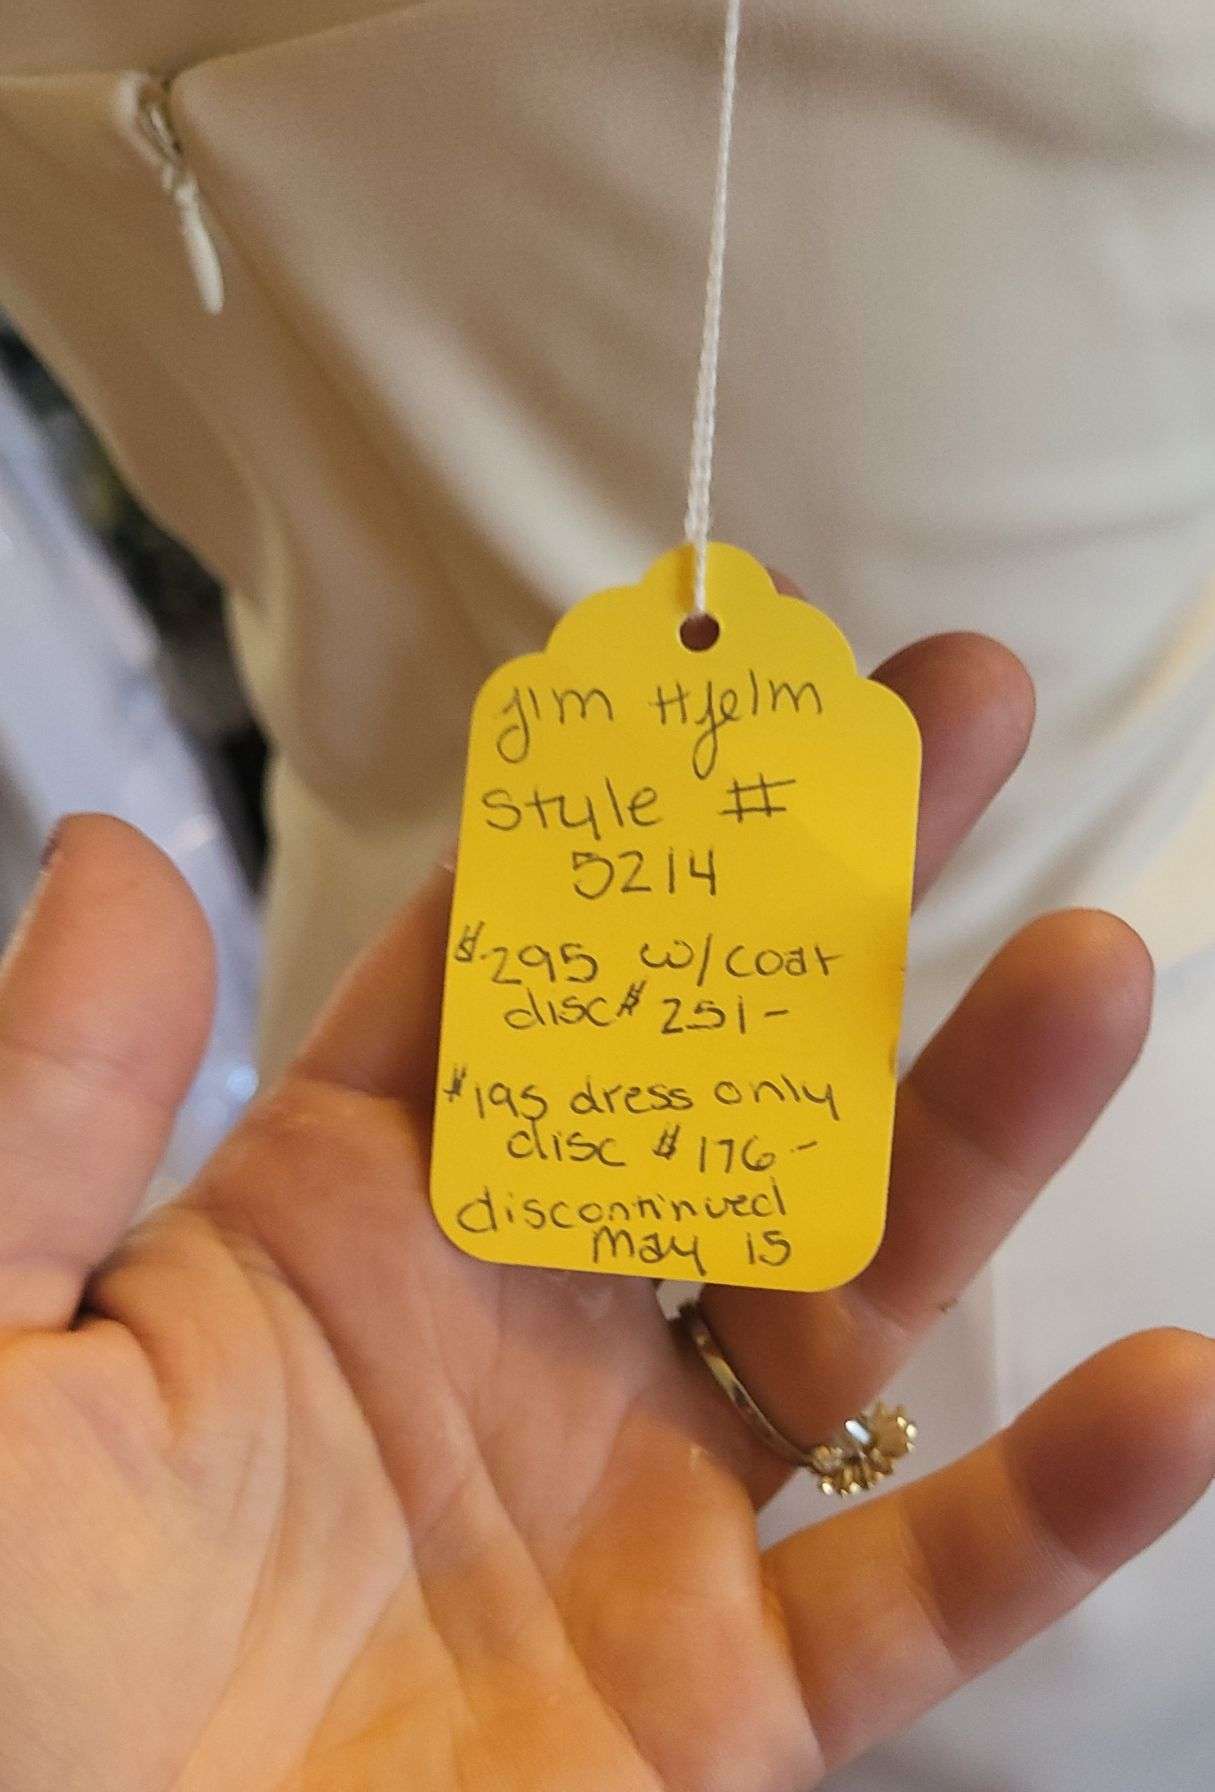 Jim Hjelm
Style #
5214
$295 w/coat
disc $251-
$195 dress only
disc $176-
discontinued
May 15